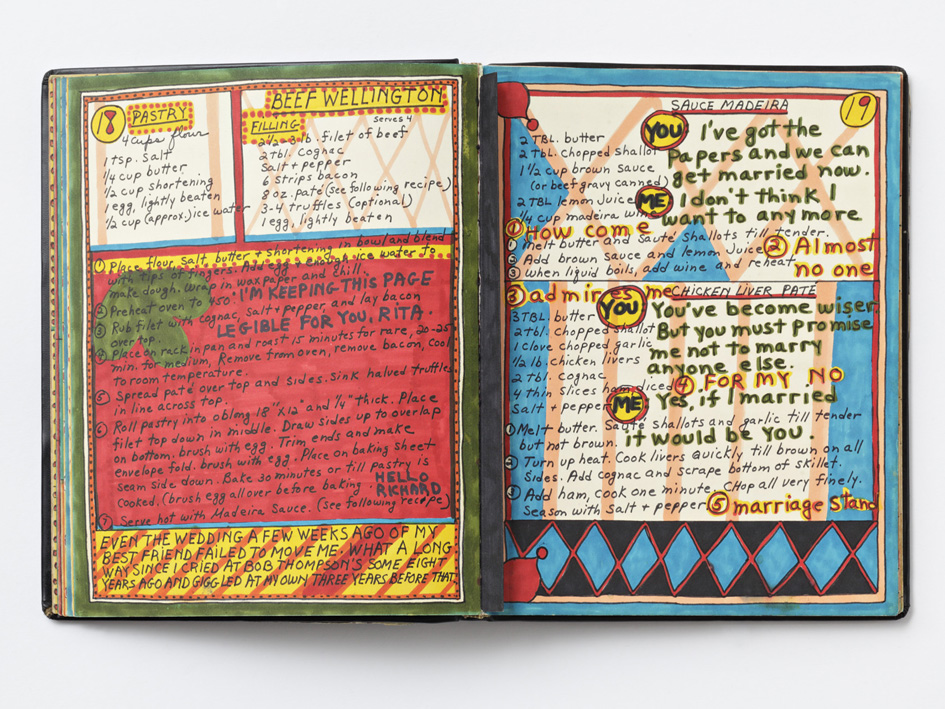 18
PASTRY
4 cups flour
1 tsp. salt
1/4 cup butter
1/2 cup shortening
1 egg, lightly beaten
1/2 cup (approx.) ice water
BEEF WELLINGTON
serves 4
FILLING
2 1/2-3 lb. filet of beef
2 tbl. cognac
Salt + pepper
6 strips bacon
8 oz. paté (see following recipe)
3-4 truffles (optional)
1 egg, lightly beaten
① Place flour, salt, butter + shortening in bowl and blend
with tips of fingers. Add egg ice water to
make dough. Wrap in wax paper and chill.
I'M KEEPING THIS PAGE
② Preheat oven to 450°
③ Rub filet with cognac, salt + pepper and lay bacon
over top.
LEGIBLE FOR YOU, RITA.
④ Place on rack in pan and roast 15 minutes for rare, 20-25
min. for medium, Remove from oven, remove bacon, Cool
To room temperature.
⑤ Spread paté over top and sides. Sink halved truffles
in line across top.
⑥ Roll pastry into oblong 18" x 12" and 1/4" thick. Place
filet top down in middle. Draw sides up to overlap
on bottom, brush with egg. Trim ends and make
envelope fold. brush with egg. Place on baking sheet
seam side down. Bake 30 minutes or till pastry is
Cooked, (brush egg all over before baking
HELLO
RICHARD
⑦ Serve hot with Madeira Sauce. (See following recipe)
EVEN THE WEDDING A FEW WEEKS AGO OF MY
BEST FRIEND FAILED TO MOVE ME. WHAT A LONG
WAY SINCE I CRIED AT BOB THOMPSON'S SOME EIGHT
YEARS AGO AND GIGGLED AT MY OWN THREE YEARS BEFORE THAT.
19
SAUCE MADEIRA
2 TBL. butter
2 TBL. chopped shallot
1 1/2 cup brown sauce
(or beef gravy canned)
2 TBL lemon juice
1/4 cup madeira wine
YOU I've got the
Papers and we can
get married now.
ME I don't think I
want to any more
① How come
① Melt butter and Sauté shallots till tender.
② Add brown sauce and lemon Juice
③ when liquid boils, add wine and reheat
② Almost
no one
③ admires me
CHICKEN LIVER PATÉ
3 TBL. butter
2 tbl. chopped shallot
1 clove chopped garlic
1/2 lb. chicken livers
2 tbl. cognac
4 thin slices ham, diced
Salt + pepper
YOU You've become wiser
But you must promise
me not to marry
anyone else.
④ FOR MY NO
ME Yes, if I married
it would be you.
① Melt butter. Sauté shallots and garlic till tender
but not brown.
② Turn up heat. Cook livers quickly till brown on all
Sides. Add cognac and scrape bottom of skillet.
Add ham, cook one minute. CHop all very finely.
Season with Salt + pepper
⑤ marriage stand